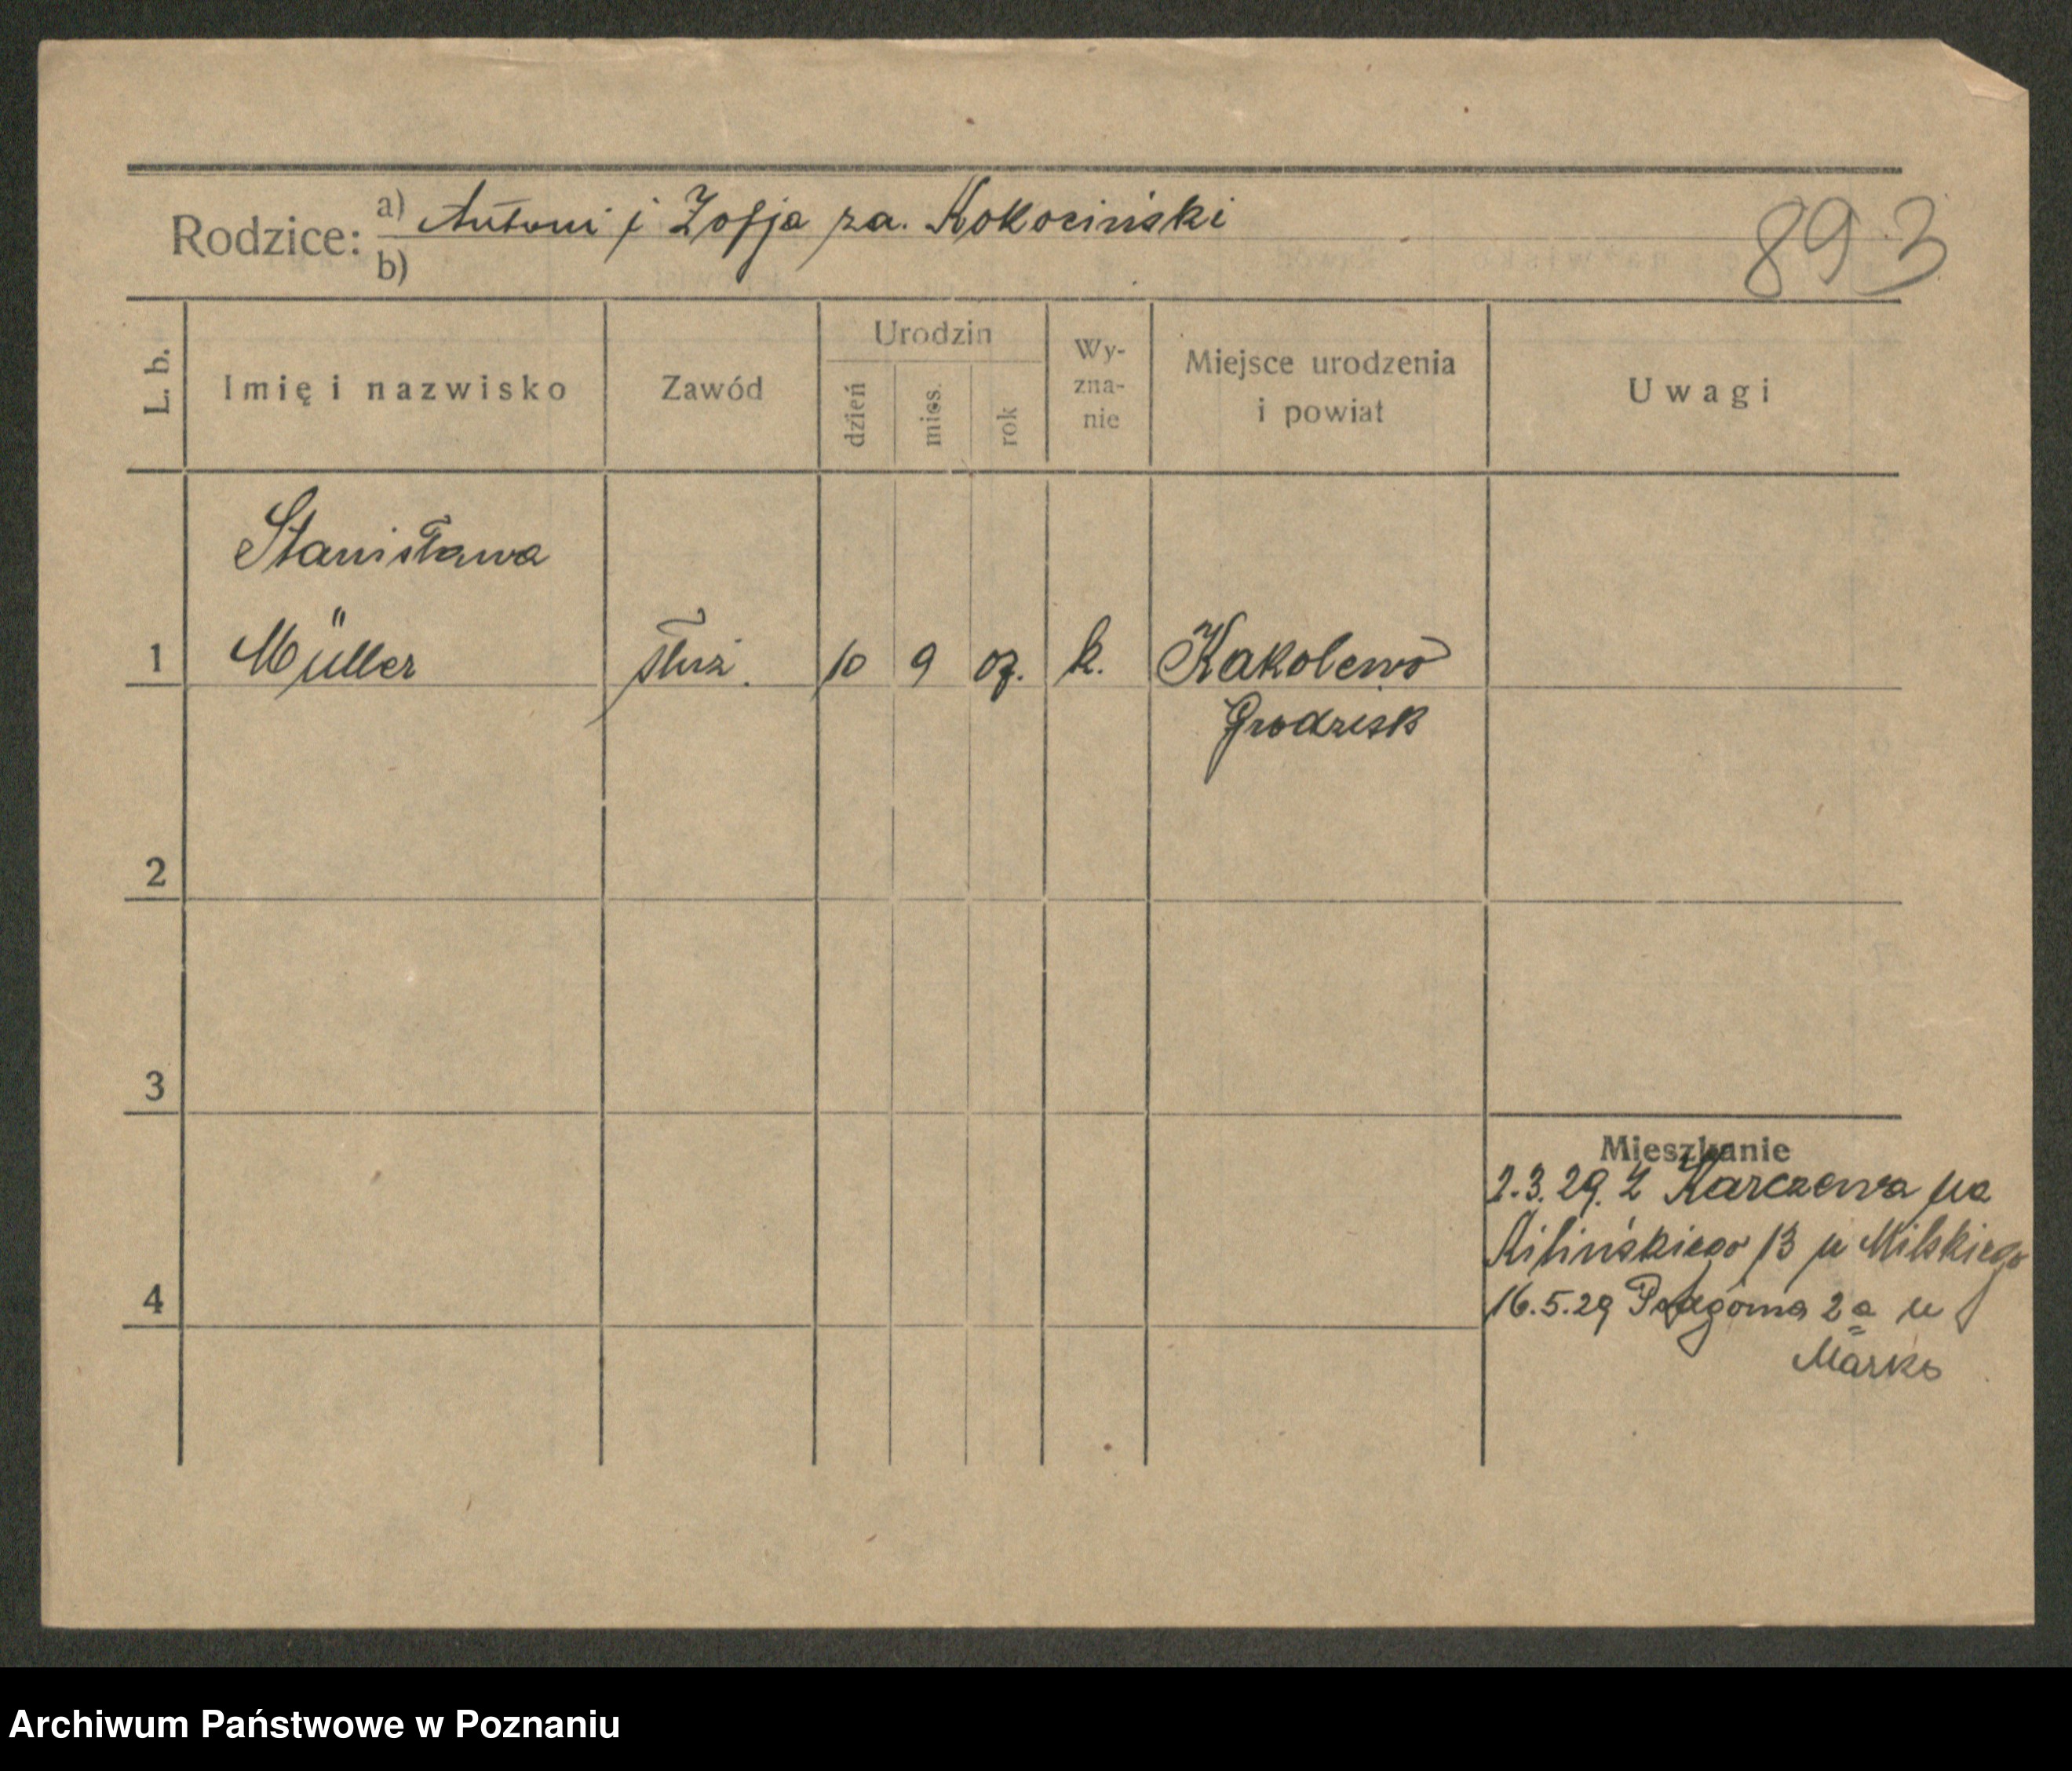 Rodzice: a) Antoni i Zofja za. Kokociński
b)
893
L. b.
Imię i nazwisko
Zawód
Urodzin
dzień
mies.
rok
Wy-
zna-
nie
Miejsce urodzenia
i powiat
Uwagi
Stanisława
1 Müller służ. 10 9 07. k. Kąkolewo
Grodzisk
2
3
Mieszkanie
2.3.29. Z Karczewa na
Kilińskiego 13 u Milskiego
4
16.5.29 Podgórna 2a u
Marks
Archiwum Państwowe w Poznaniu